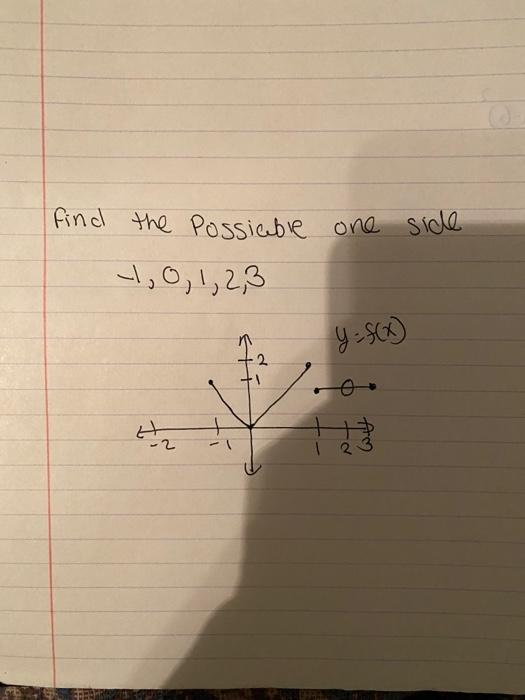 find the Possicable one side
-1, 0, 1, 2, 3
y = f(x)
2
1
-2 -1 1 2 3